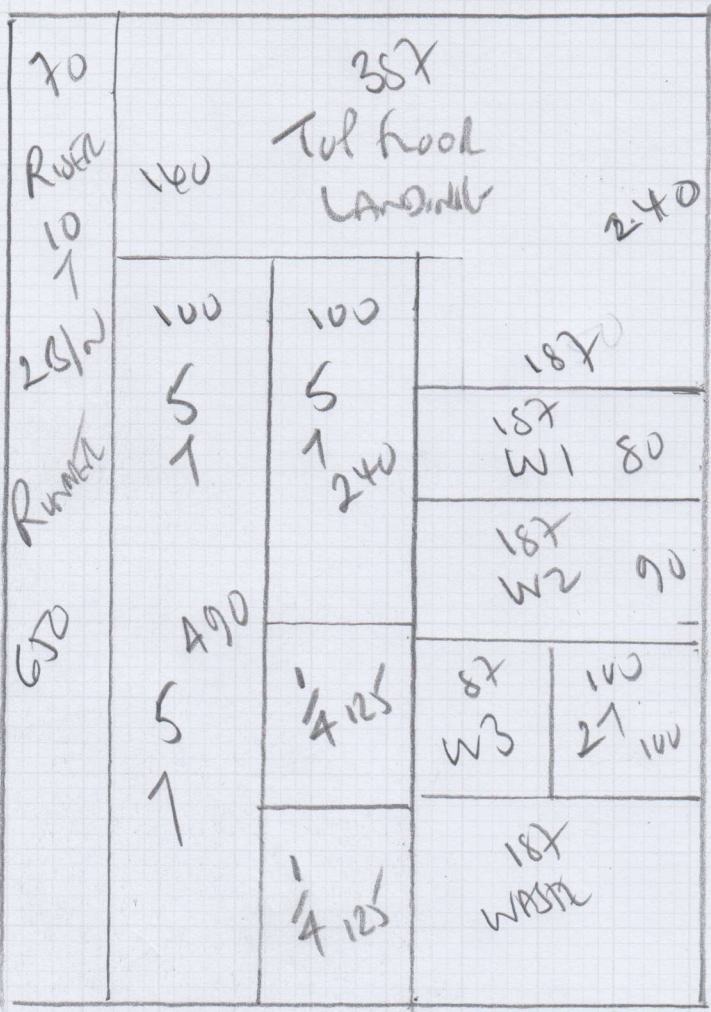 70
RISER
10
1
2B/N
RUNNER
650
387
TOP FLOOR
LANDING
160
2.40
187
100
5
1
490
5
1
100
5
1
240
1/4 125
1/4 125
187
W1 80
187
W2 90
87
W3
100
21 100
187
WASTE